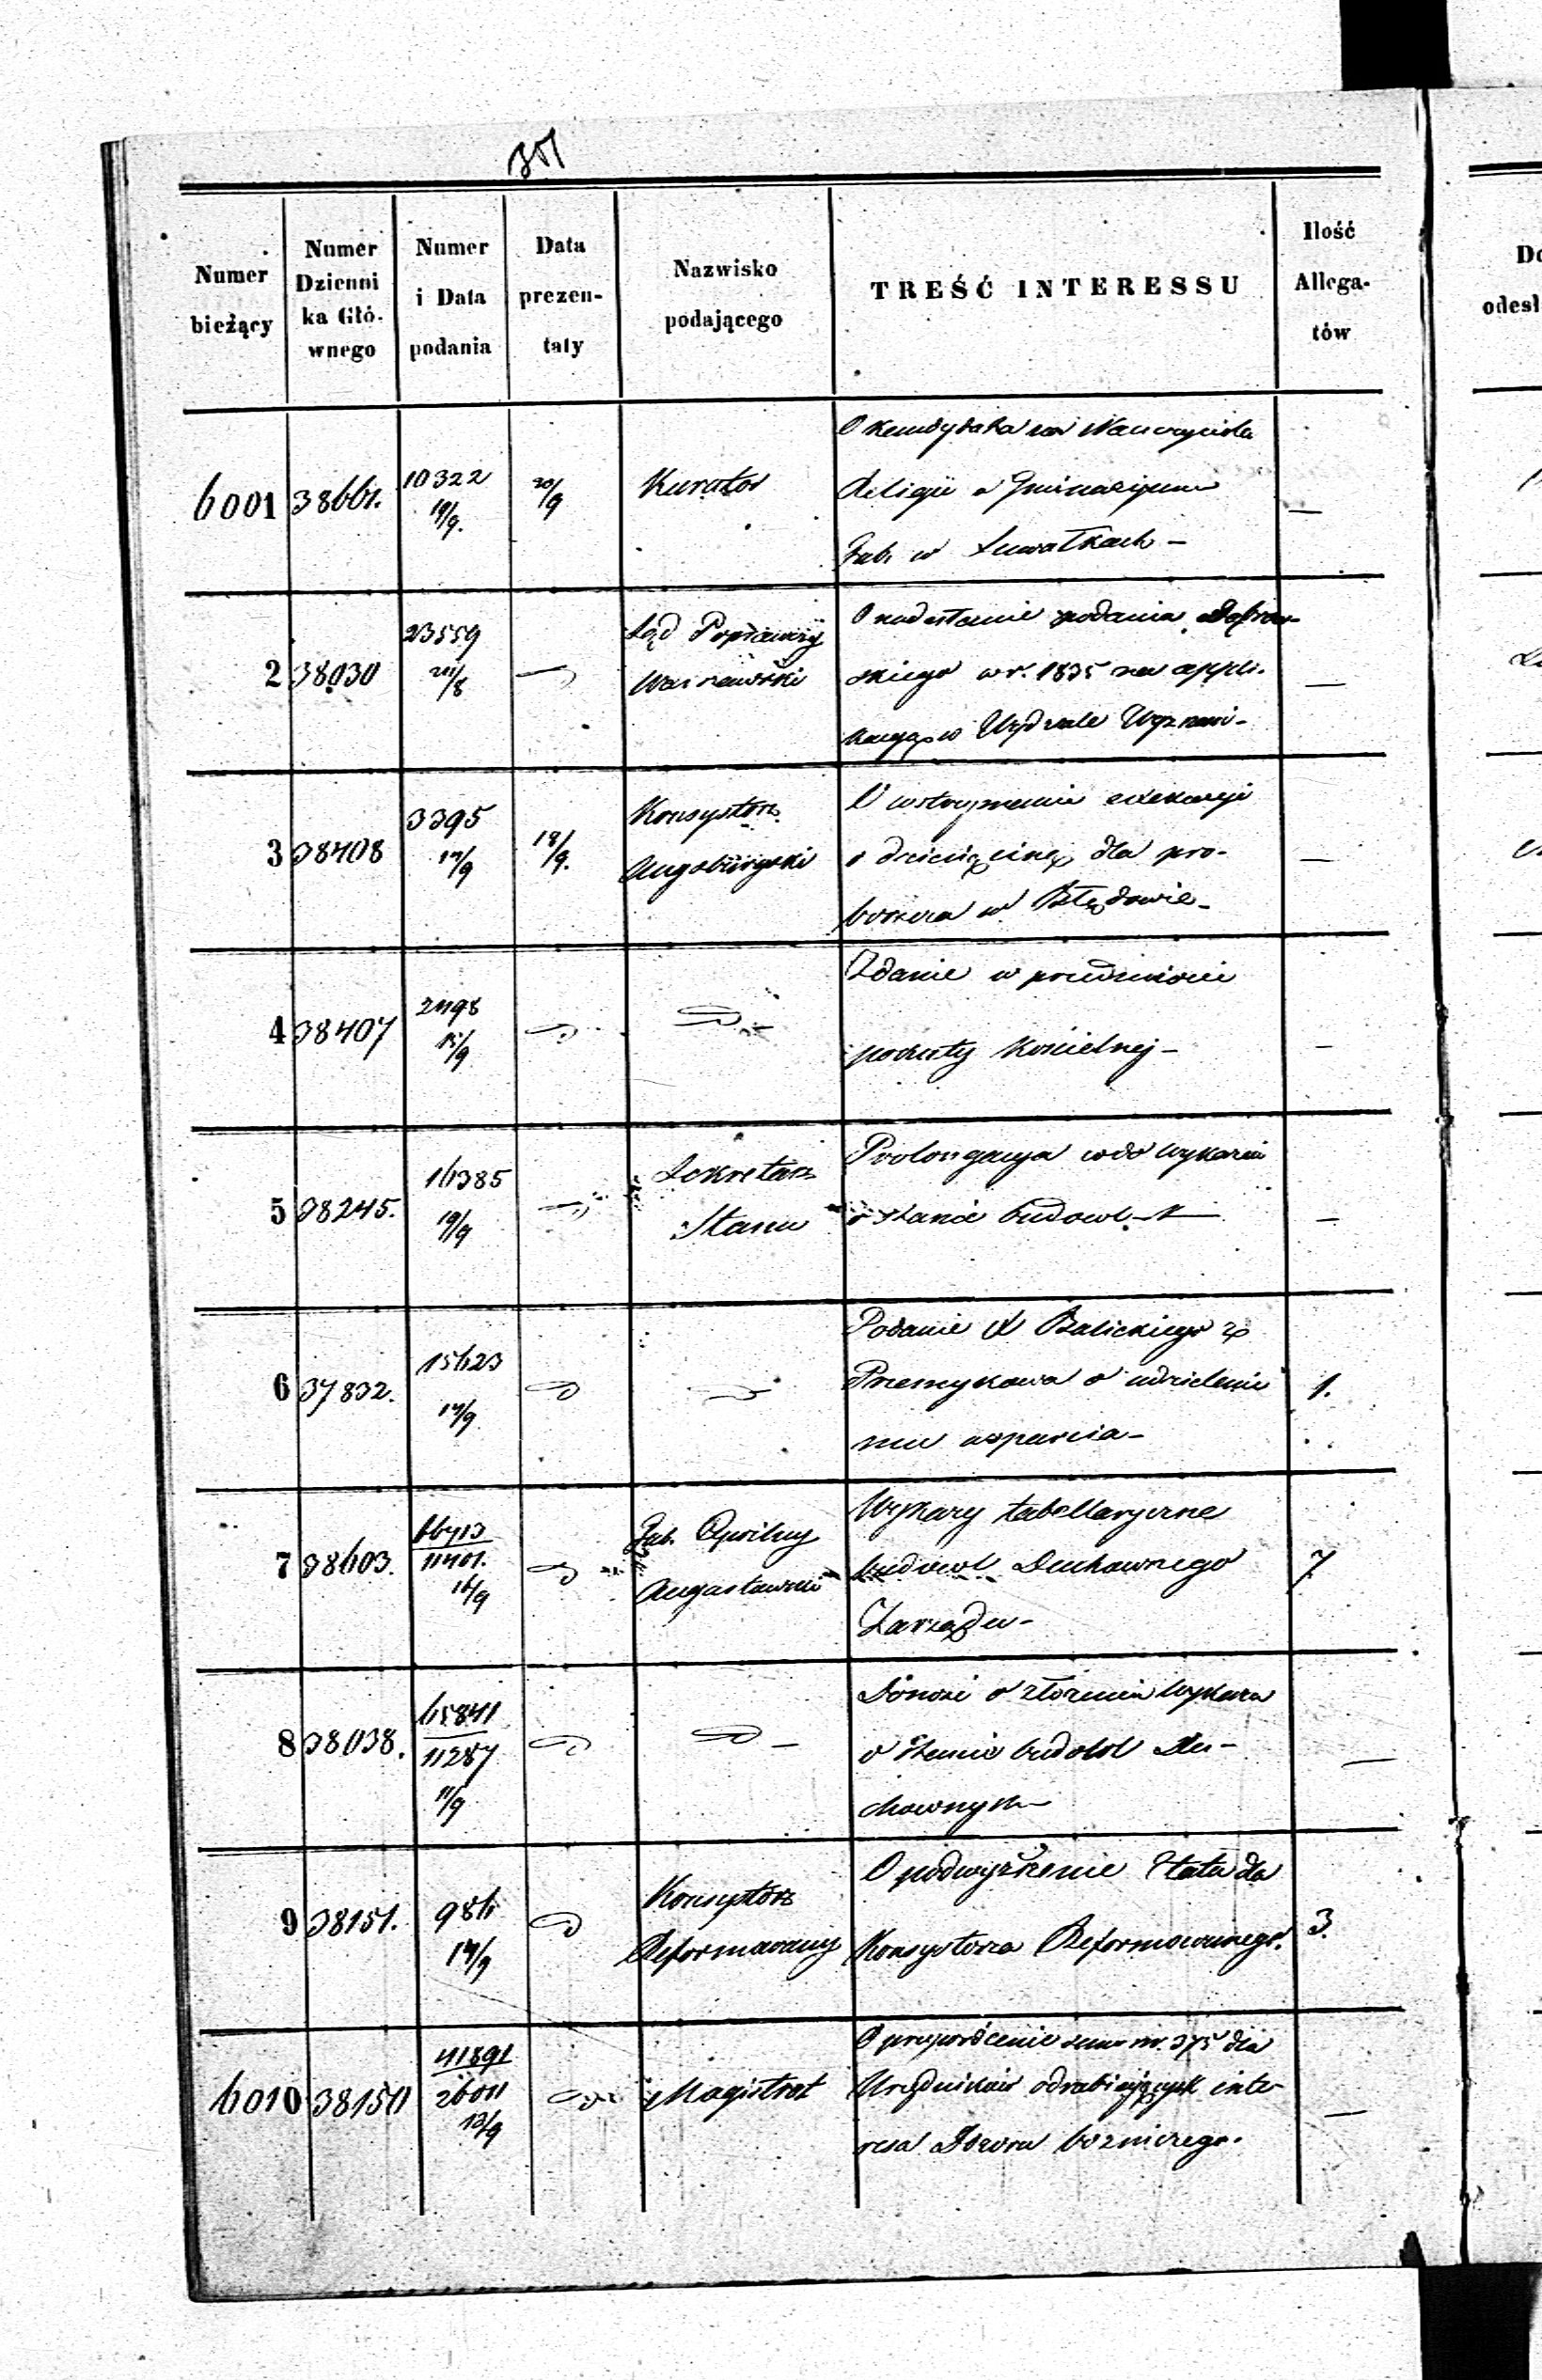 301
Numer bieżący
Numer Dzienni ka Głó- wnego
Numer i Data podania
Data prezen- taty
Nazwisko podającego
TREŚĆ INTERESSU
Ilość Allega- tów
6001 38661. 10322 19/9. 20/9 Kurator
O kandydata na Nauczyciela
Religii w Gimnazyum
Gub. w Suwałkach –
2 38030 23559 20/8 Sąd Poprawczy Warszawski
O nadesłanie podania
skiego w r. 1835 na appli-
kacyą w Wydziale Wyznań –
3 38408 3395 14/9 19/9. Konsystorz Augsburgski
O wstrzymanie exekucyi
o dziesięcinę dla pro-
boszcza w Błędowie –
4 38407 2498 15/9
Zdanie w przedmiocie
pokuty kościelnej –
5 38245. 16385 19/9 Sekretarz Stanu
Prolongacya co do wykazu
o stanie budowl
6 37832. 15623 14/9
Podanie X Balickiego z
Przemykowa o udzielenie
mu wsparcia – 1.
7 38603. 66713 11401. 16/9 Gub. Cywilny Augustowski
Wykazy tabellaryczne
budowl Duchownego
Zarządu – 7
8 38038. 65841 11287 11/9
Donosi o złożeniu wykazu
o stanie budowl Du-
chownych –
9 38151. 986 14/9 Konsystorz Reformowany
O podwyższenie Etatu dla
Konsystorza Reformowanego. 3.
6010 38150 41891 26011 13/9 Magistrat
O przywrócenie summ rs. 375 dla
Urzędników odrabiających inte-
resa Dozoru bożniczego.
Do
odesł